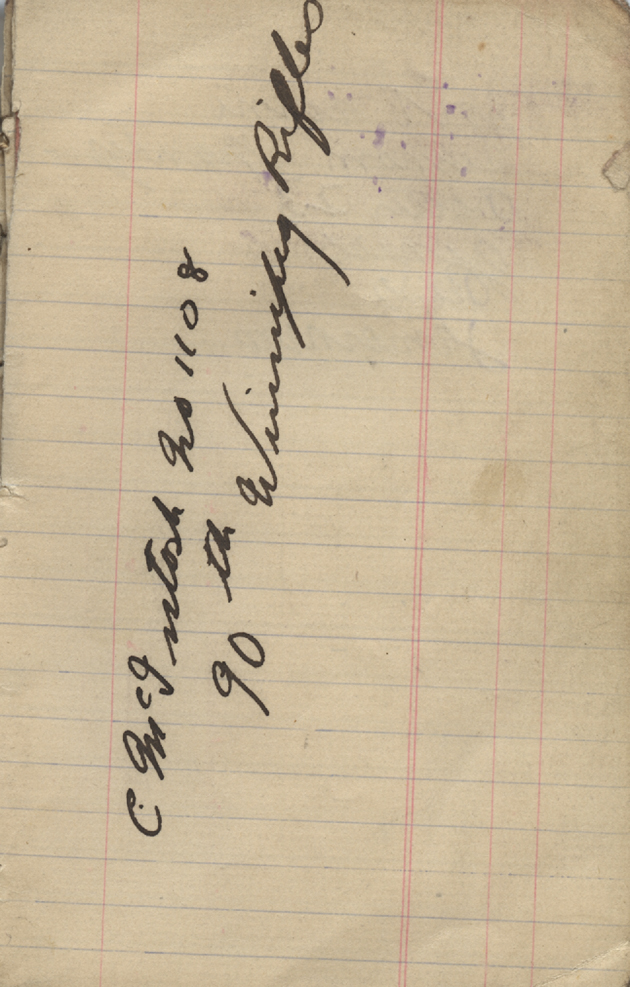 C. McIntosh No 1108
90th Winnipeg Rifles